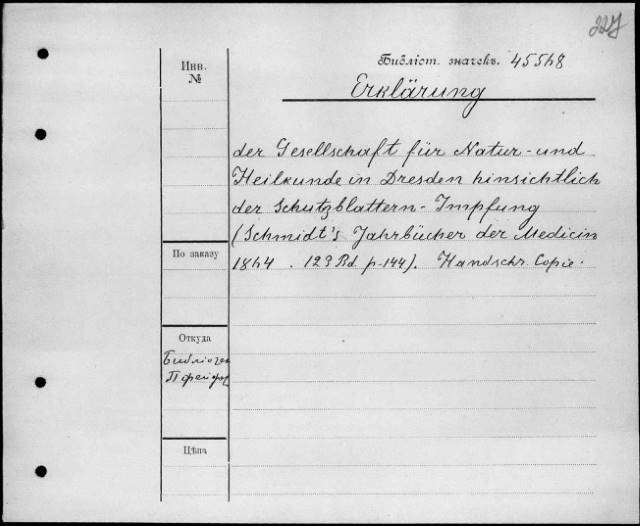 227
Библіот. значекъ. 45548
Инв.
№
Erklärung
der Gesellschaft für Natur-und
Heilkunde in Dresden hinsichtlich
der Schutzblattern-Impfung
(Schmidt's Jahrbücher der Medicin
1864 . 123 Bd. p-144). Handschr. Copie.
По заказу
Откуда
Цѣна